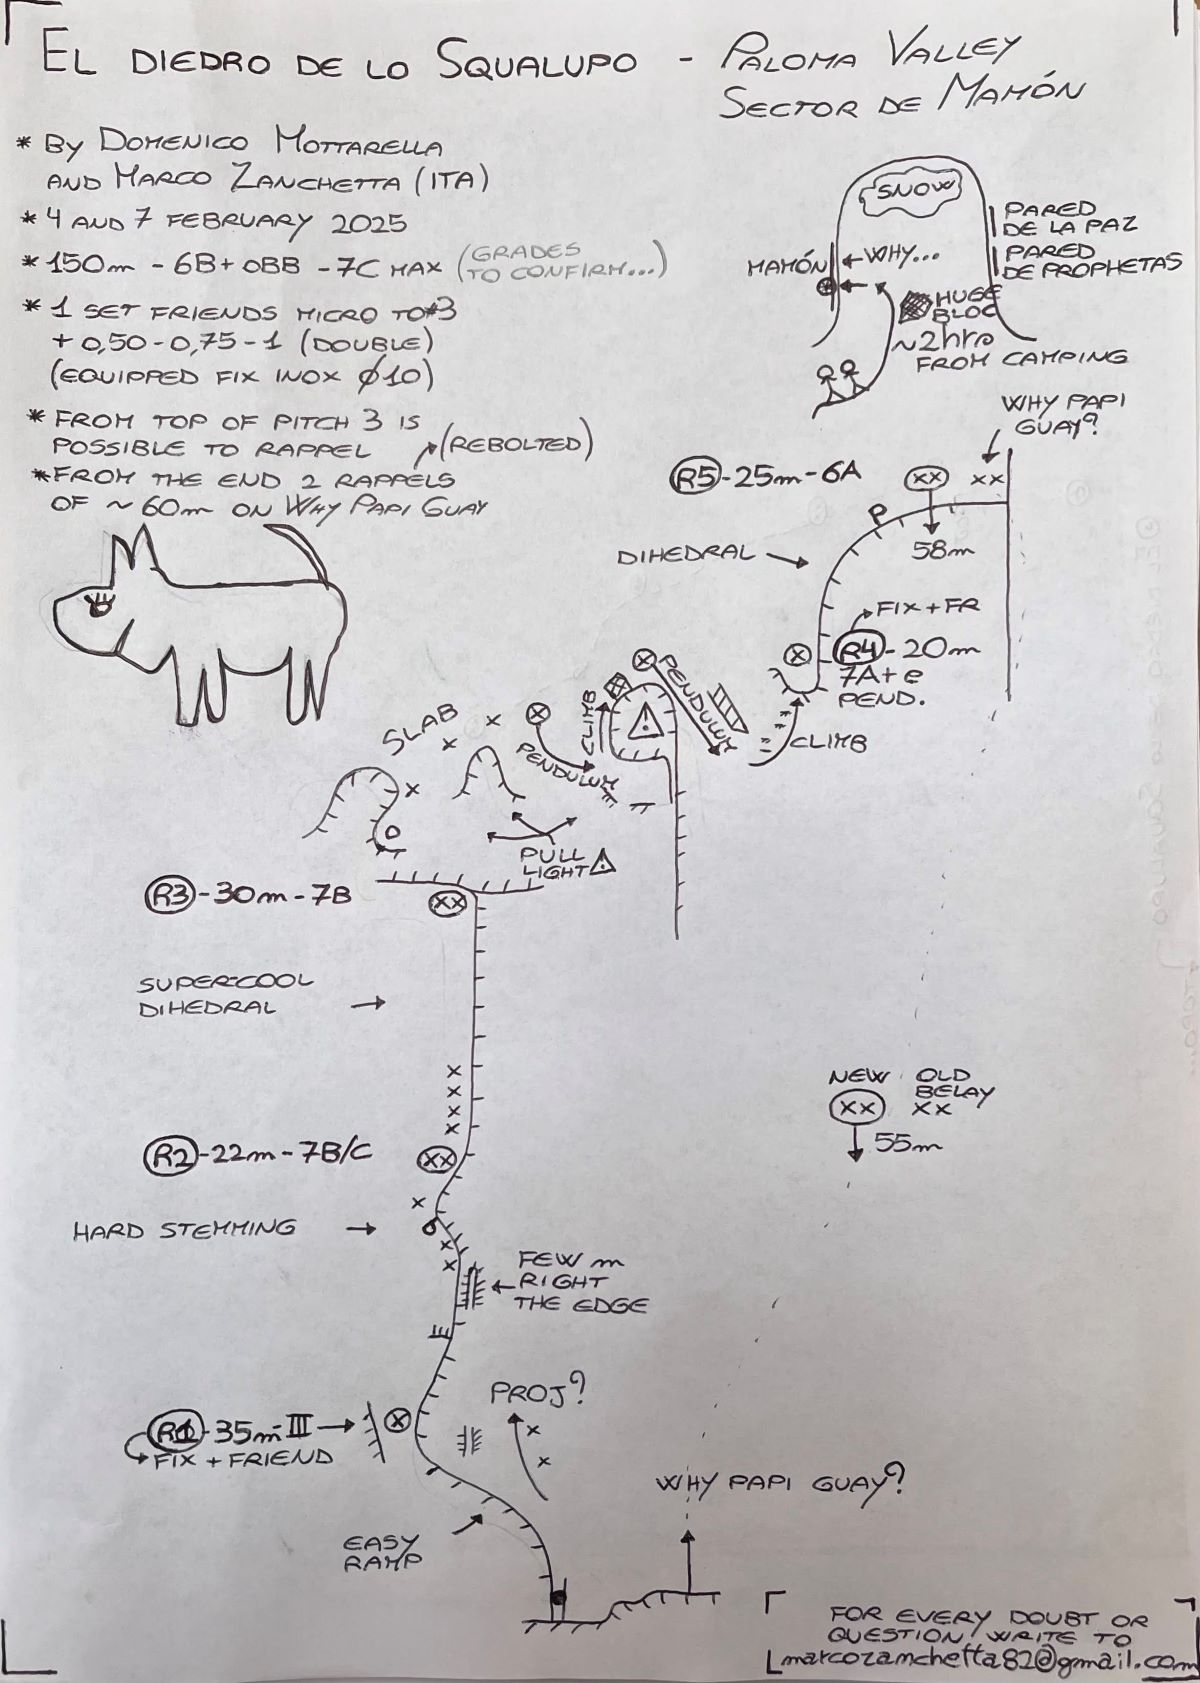 EL DIEDRO DE LO SQUALUPO - PALOMA VALLEY
SECTOR DE MAMÓN
* BY DOMENICO MOTTARELLA
AND MARCO ZANCHETTA (ITA)
* 4 AND 7 FEBRUARY 2025
* 150m - 6B+ OBB - 7C MAX (GRADES
TO CONFIRM...)
* 1 SET FRIENDS MICRO TO #3
+ 0,50 - 0,75 - 1 (DOUBLE)
(EQUIPPED FIX INOX Ø10)
* FROM TOP OF PITCH 3 IS
POSSIBLE TO RAPPEL (REBOLTED)
* FROM THE END 2 RAPPELS
OF ~ 60m ON WHY PAPI GUAY
SNOW
PARED
DE LA PAZ
MAMÓN
WHY...
PARED
DE PROPHETAS
HUGE
BLOC
~2hrs
FROM CAMPING
WHY PAPI
GUAY?
R5 - 25m - 6A
XX
XX
P
58m
DIHEDRAL
FIX + FR
X
R4 - 20m
7A+ e
PEND.
X
PENDULUM
CLIMB
CLIMB
SLAB
X
X
X
PENDULUM
X
PULL
LIGHT
R3 - 30m - 7B
XX
SUPERCOOL
DIHEDRAL
X
X
X
X
NEW
XX
OLD
BELAY
XX
55m
R2 - 22m - 7B/C
XX
X
HARD STEMMING
X
X
FEW m
RIGHT
THE EDGE
PROJ?
R1 - 35m - III
X
X
X
FIX + FRIEND
WHY PAPI GUAY?
EASY
RAMP
FOR EVERY DOUBT OR
QUESTION, WRITE TO
marcozanchetta82@gmail.com